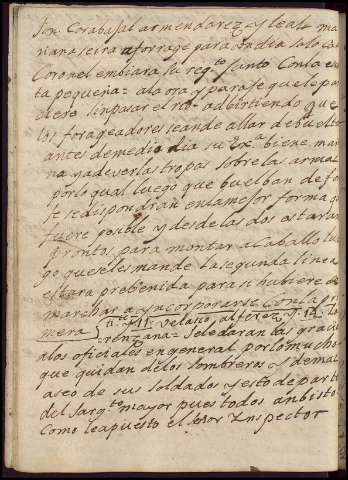 Jon Carabajal armendarez y teal= ma
nana seira a forrage para un dia solo cada
Coronel embiara su regto. tanto Con la es
ta pequeña= ala ora y paraje que le pa
resiere sin pasar el rio adbirtiendo que
los forageadores se ande allar de buelta
antes de medio dia su Exa. biene maña
na y a de ver las tropas sobre la arma
por lo qual luego que buelban de fo
se se dispondran en la mejor forma que
fuere posible y desde las dos estaran
prontos para montar a Caballo lue
go que se les mande la segunda linea
estara prebenida para si hubiere de
marchar a yncorporarse Con la pri
mera
Velasco alferez
Se le daran las gracias
a los oficiales en general por lo mucho
que quidan de los sombreros y demas
aseo de sus soldados y esto de parte
del sargto. mayor pues todos an bisto
Como lea puesto el señor Ynspector